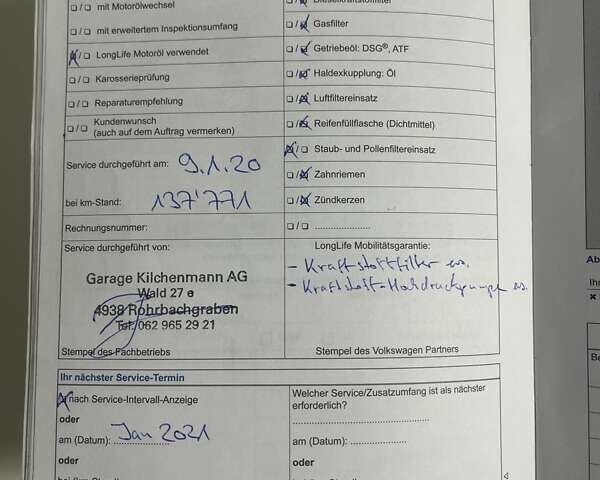 ☐/☐ mit Motorölwechsel
☐/☐ mit erweitertem Inspektionsumfang
☒/☐ LongLife Motoröl verwendet
☐/☐ Karosserieprüfung
☐/☐ Reparaturempfehlung
☐/☐ Kundenwunsch
(auch auf dem Auftrag vermerken)
Service durchgeführt am: 9.1.20
bei km-Stand: 137'771
Rechnungsnummer:
Service durchgeführt von:
Garage Kilchenmann AG
Wald 27 e
4938 Rohrbachgraben
Tel. 062 965 29 21
Stempel des Fachbetriebs
☐/☒ Dieselkraftstofffilter
☐/☒ Gasfilter
☐/☒ Getriebeöl: DSG®, ATF
☐/☒ Haldexkupplung: Öl
☐/☒ Luftfiltereinsatz
☐/☒ Reifenfüllflasche (Dichtmittel)
☒/☐ Staub- und Pollenfiltereinsatz
☐/☒ Zahnriemen
☐/☒ Zündkerzen
☐/☐ ....................
LongLife Mobilitätsgarantie:
- Kraftstoffilter ers.
- Kraftstoff-Hochdruckpumpe ers.
Stempel des Volkswagen Partners
Ihr nächster Service-Termin
☒ nach Service-Intervall-Anzeige
oder
am (Datum): Jan 2021
oder
Welcher Service/Zusatzumfang ist als nächster
erforderlich?
am (Datum): ....................
oder